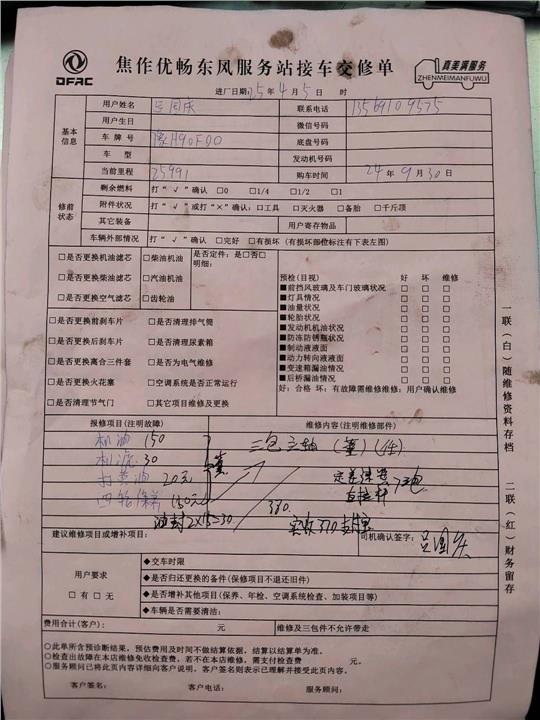 DFAC
焦作优畅东风服务站接车交修单
真美满服务
ZHENMEIMANFUWU
进厂日期: 25 年 4 月 5 日 时
基本信息
用户姓名 吕国庆 联系电话 13569109575
用户生日 微信号码
车牌号 豫H90FD0 底盘号码
车型 发动机号码
当前里程 25991 购车时间 24 年 9 月 30 日
修前状态
剩余燃料 打“√”确认 □0 □1/4 □1/2 □1
附件状况 打“√”或打“×”确认: □工具 □灭火器 □备胎 □千斤顶
其它装备 用户寄存物品
车辆外部情况 打“√”确认 □完好 □有损坏 (有损坏部位标注有下表左图)
□是否更换机油滤芯 □柴油机油 是否定件: 是□否□
明细:
□是否更换柴油滤芯 □汽油机油
□是否更换空气滤芯 □齿轮油
□是否更换前刹车片 □是否清理排气筒
□是否更换后刹车片 □是否清理尿素箱
□是否更换离合三件套 □是否为电气维修
□是否更换火花塞 □空调系统是否正常运行
□是否清理节气门 □其它项目维修及更换
预检(目视) 好 坏 维修
■前挡风玻璃及车门玻璃状况 □ □ □
■灯具情况 □ □ □
■油量状况 □ □ □
■轮胎状况 □ □ □
■发动机机油状况 □ □ □
■防冻防锈瓶状况 □ □ □
■制动液液面 □ □ □
■动力转向液液面 □ □ □
■变速箱漏油情况 □ □ □
■后桥漏油情况 □ □ □
好: 合格 坏: 有故障需维修维修: 用户确认维修
报修项目(注明故障) 维修内容(注明维修部件)
机油 150
三包
机滤 30
打黄油 20元
四轮保养 150元
380
直拉杆
油封2X15=30
实收370支付宝
建议维修项目或增补项目:
司机确认签字: 吕国庆
用户要求
□有□无
◆交车时限
◆是否归还更换的备件(保修项目不退还旧件)
◆是否增补其他项目(保养、年检、空调系统检查、加装项目等)
◆车辆是否需要清洁:
费用合计(客户): 元 维修及三包件不允许带走
○此单所含预诊断结果,预估费用及时间不做结算依据,结算以结算单为准。
○检查出故障在本店维修免收检查费,若不在本店维修,需支付检查费 元。
○服务顾问已将此页内容详细向客户说明,客户签名则表示已理解并接受此页内容。
客户签名: 客户电话: 服务顾问:
一联(白)随维修资料存档
二联(红)财务留存